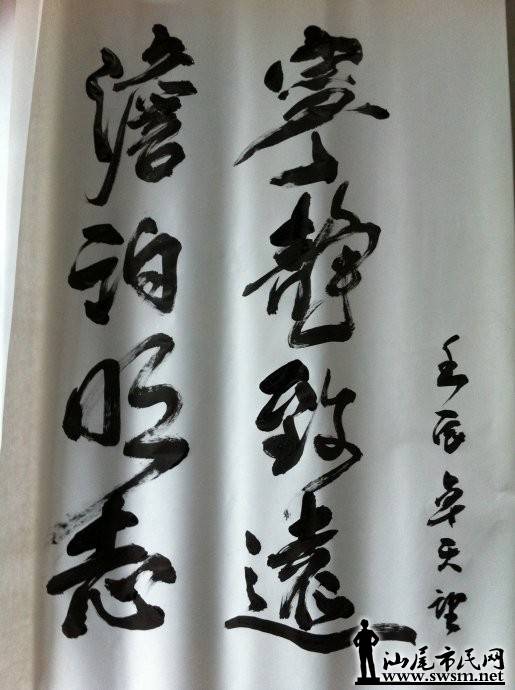 澹泊明志
寧靜致遠
壬辰年天望
汕尾市民网
www.swsm.net